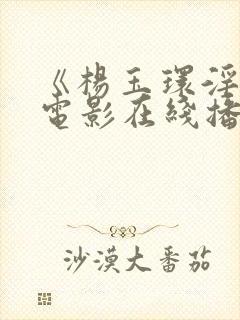 《楊玉環淫
電影在綫播
沙漠大番茄